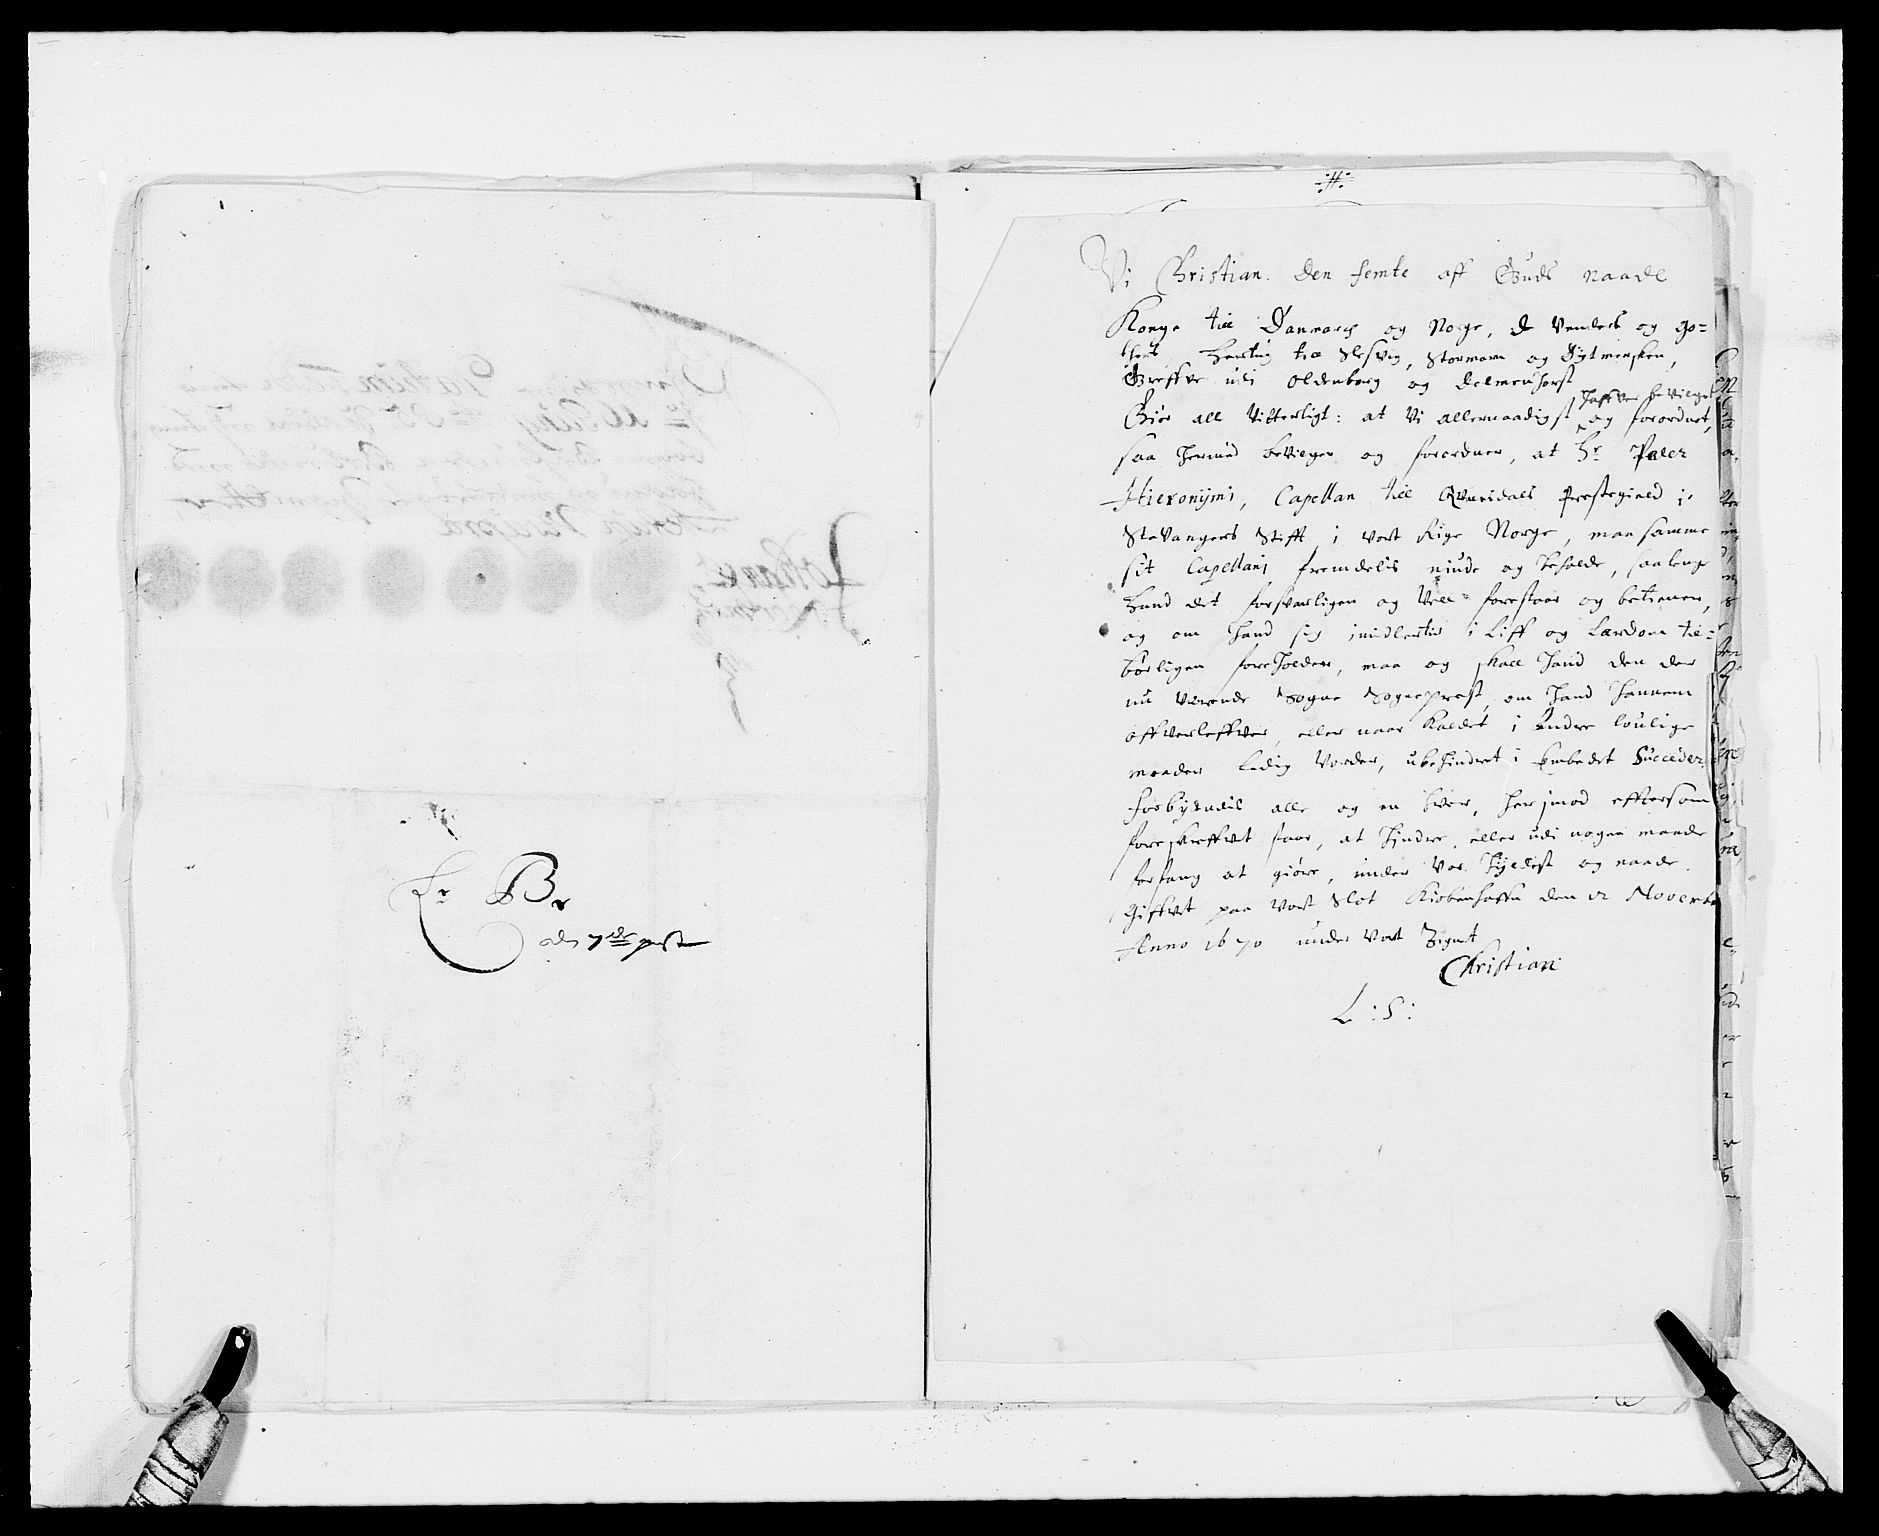 Er B.
den 7de post
:#:
Vi Christian den femte aff Guds naade
Konge till Danmarck og Norge, de Venders og Go=
thers, Hertug till Slesvig, Stormarn og Dytmersken,
Greffve udi Oldenborg og Delmenhorst
Giør all vitterligt: at Vi allernaadigst haffver bevilget og forordnet,
saa hermed bevilger og forordner, at Hr Peder
Hieronymi, Capellan till Qvinisdals Prestegield i
Stavangers Stifft i vort Rige Norge, maa samme
sit Capellani fremdelis niude og beholde, saalenge
hand det forsvarligen og vell forestaar og betiener,
og om hand sig imidlertid i Liff og Lærdom til=
børligen forholder, maa og skall hand den der
nu værende Sogne Sogneprest, om hand hannem
offverleffver, eller naar kaldet i andre lovlige
maader ledig vorder, ubehindret i Embedet Succedere
forbydendis alle og en hver, herimod eftersom
foreskreffvet staar, at hindre, eller udi nogen maade
forfang at giøre, under vor hyldest og naade.
Giffvet paa vort Slot Kiøbenhaffn den 12 Novemb
Anno 1670 under vort Zignet
Christian
L : S :